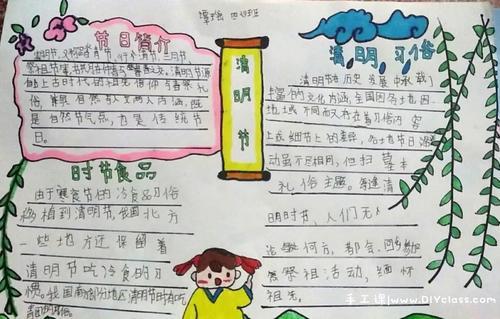 四班
节日简介
清明节,又称踏青节、行清节、三月节、
祭祖节等,
自上古时代的祖先信仰与春祭礼
俗,兼具自然与人文两大内涵,既
是自然节气点,也是传统节
日。
清明节
清明习俗
清明节在历史发展中承载了
丰富的文化内涵,全国各地因
地域不同而又存在着习俗内容
上或细节上的差异,各地节日活
动虽不尽相同,但扫墓祭
礼俗主题。每逢清
明时节,人们无
论何方,都会回乡参加
祭祖活动,缅怀
祖先。
时节食品
由于寒食节的冷食品习俗
移植到清明节,我国北方
一些地方还保留着
清明节吃冷食的习
惯。我国南部分地区清明节时有吃
青团的习俗。
手工课|www.DIYclass.com